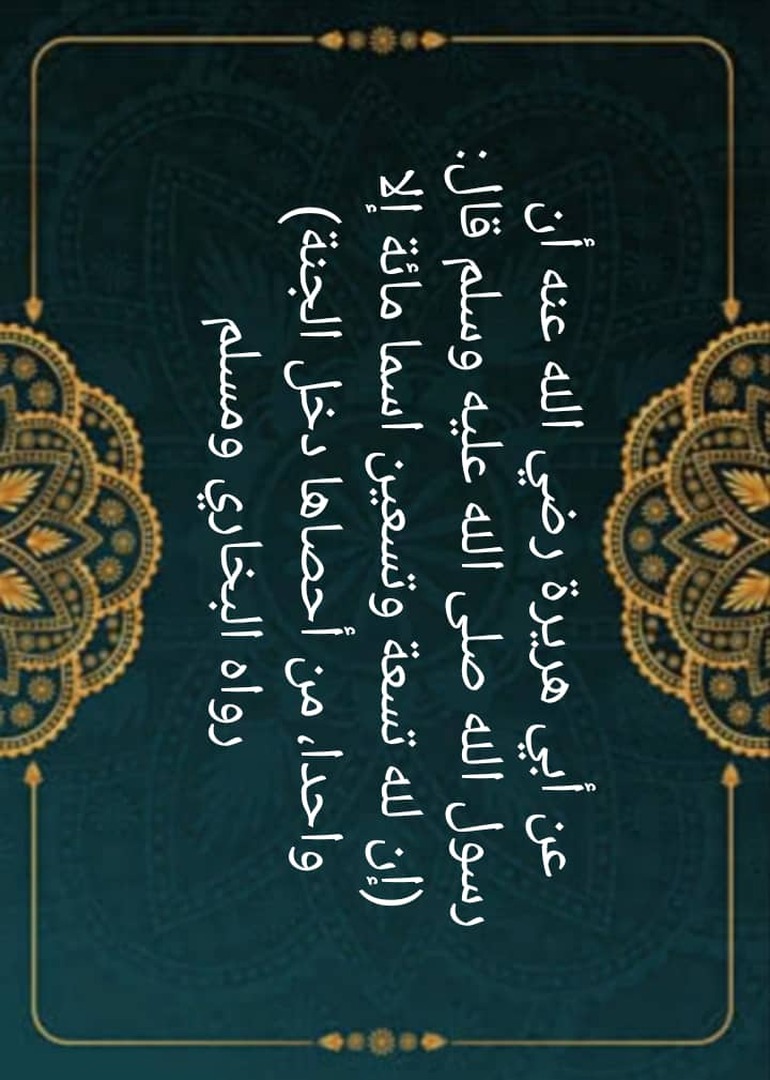 عن أبي هريرة رضي الله عنه أن
رسول الله صلى الله عليه وسلم قال:
(إن لله تسعة وتسعين اسما مائة إلا
واحدا، من أحصاها دخل الجنة)
رواه البخاري ومسلم